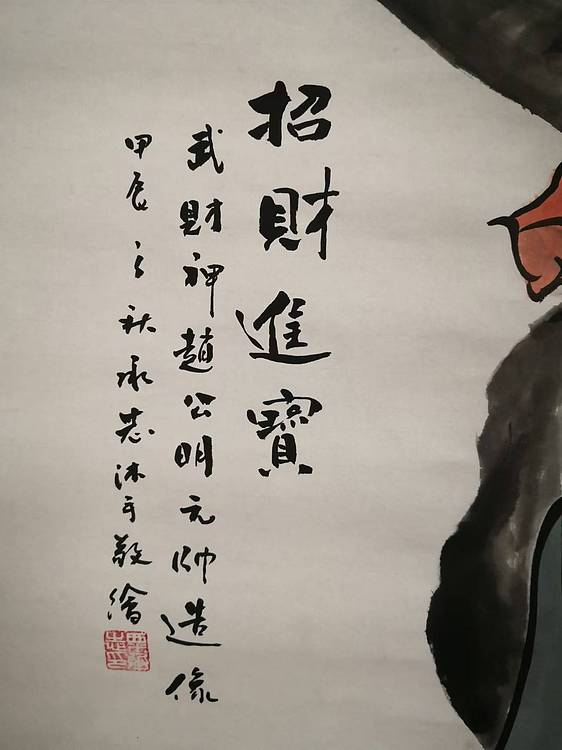 招財進寶
武財神趙公明元帥造像
甲辰之秋承志沐手敬繪